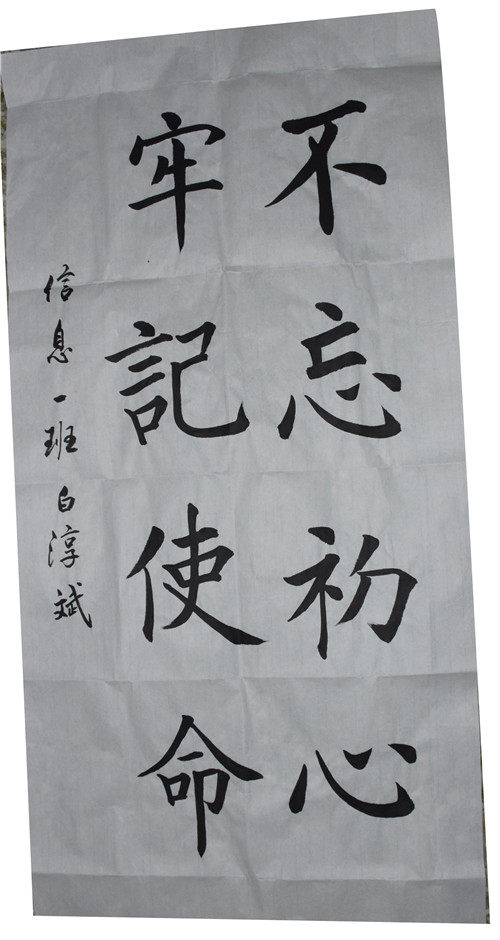 不忘初心
牢記使命
信息一班白淳斌